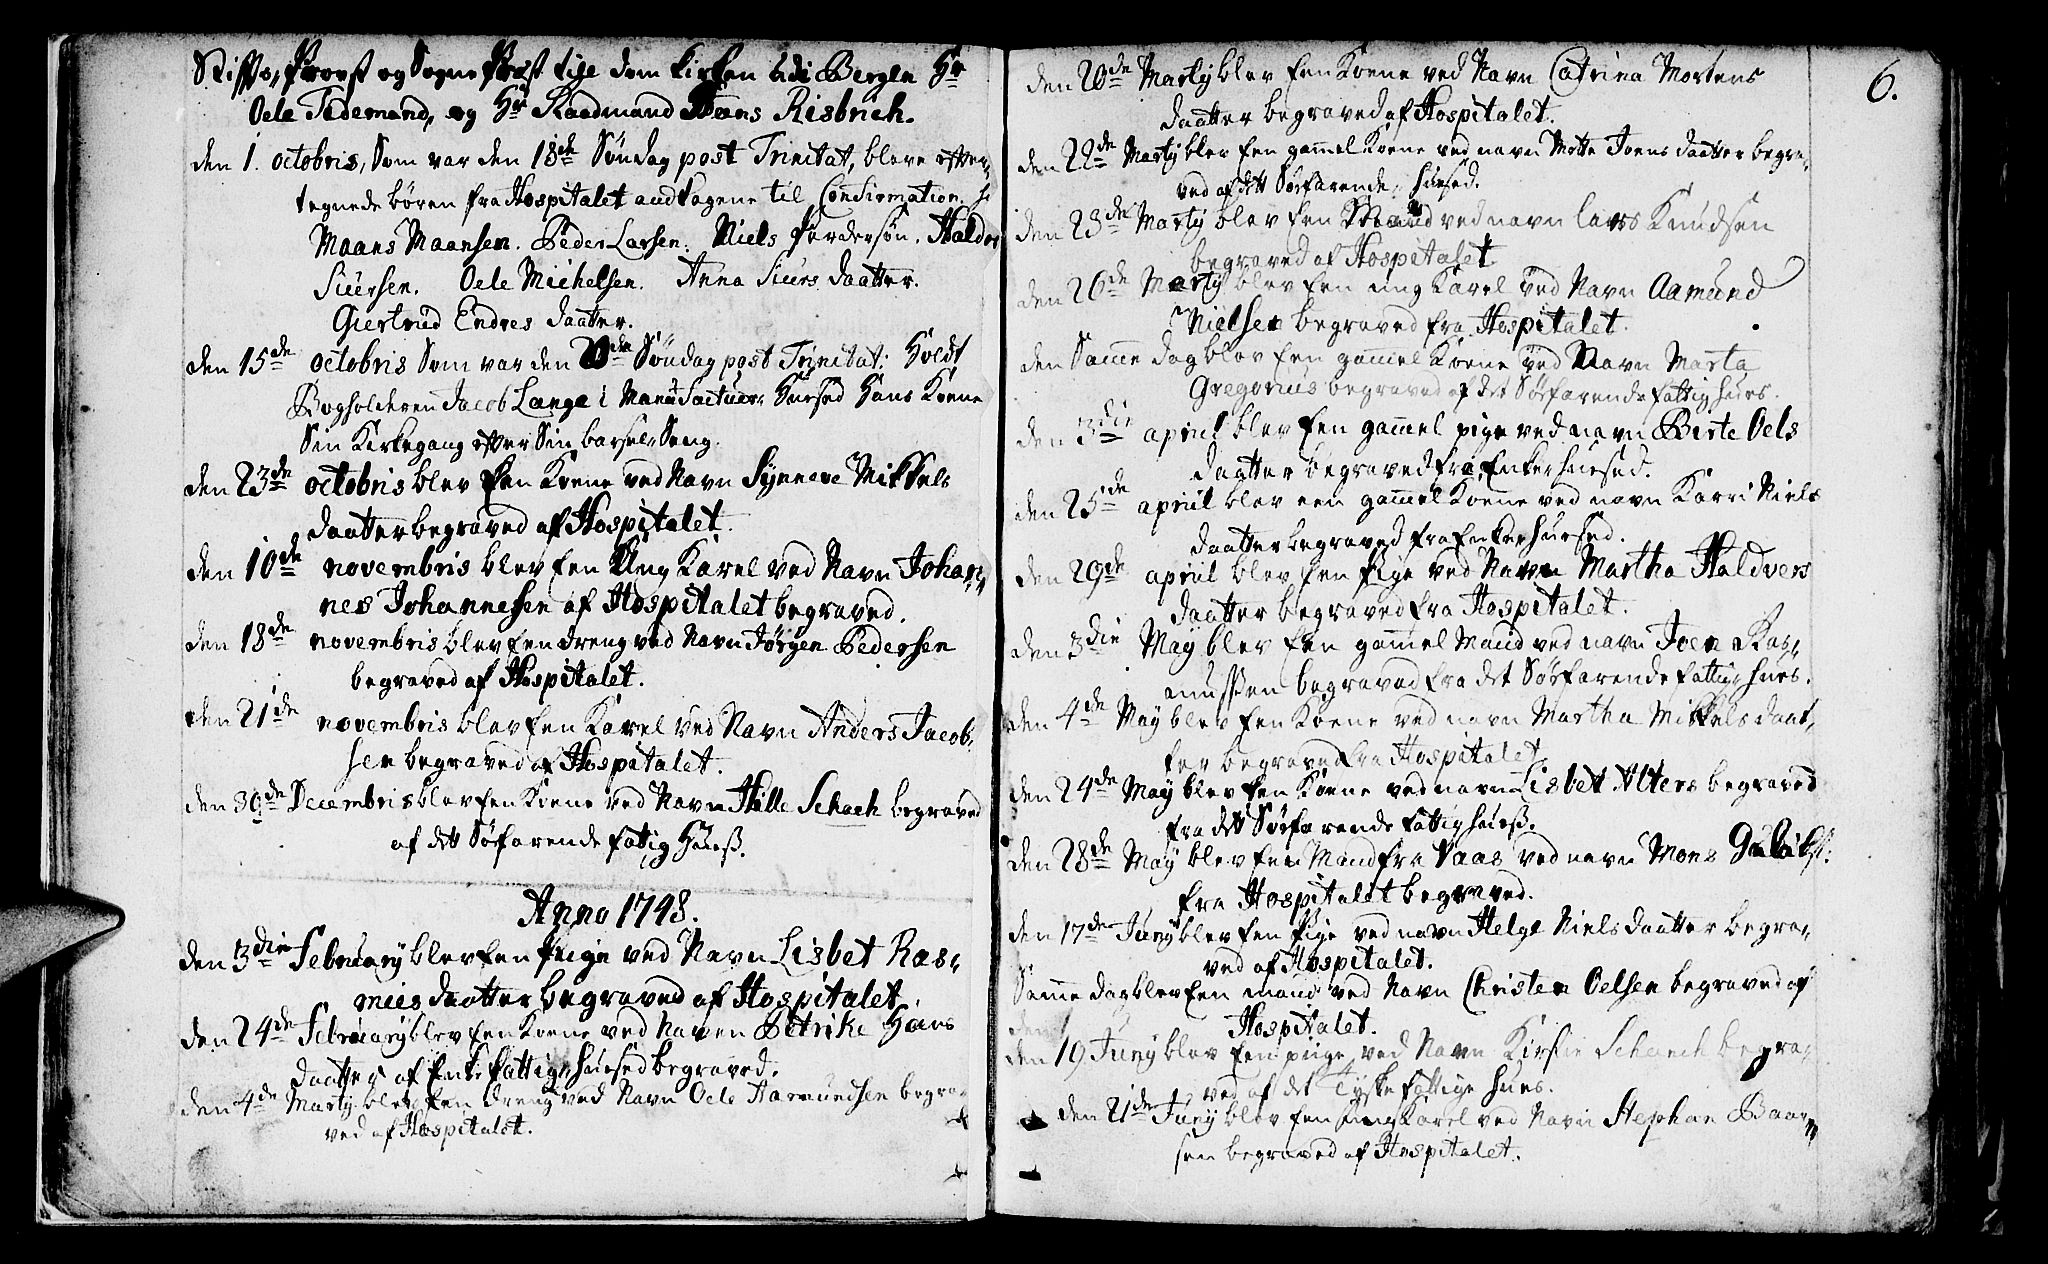 Stifts Provst og Sogne Præst tije dem kirken udi Bergen Hr
Oele Tidemand, og Hr Raadmand Hans Risbrich.
den 1. octobris, Som var den 18de Söndag post Trinitat, bleve efter-
tegnede börn fra Hospitalet andtagene til Confirmation.
Maans Maansen. Peder Larsen. Niels Pördersøn. Haldor
Siursen. Oele Michelsen. Anna Siurs daatter.
Giertrud Endres daatter.
den 15de octobris Som var den 20de Söndag post Trinitat: Holdt
Bogholderen Jacob Lange i Manufactuer Huused Hans Kone
Sin Kirkegang efter Sin barsel Seng.
den 23de octobris blev Een Kone ved Navn Synneve Mikkels
daatter begraved af Hospitalet.
den 10de novembris blev Een Ung Karel ved Navn Johan-
nes Johannesen af Hospitalet begraved.
den 18de novembris blev Een dreng ved Navn Jørgen Pedersen
begraved af Hospitalet.
den 21de novembris blev Een Karel ved Navn Anders Jacob-
sen begraved af Hospitalet.
den 30de Decembris blev Een Kone ved Navn Hille Schach begraved
af dett Sörfarende fatig Huuß.
Anno 1748.
den 3die February blev Een Piige ved Navn Lisbet Ras-
mus daatter begraved af Hospitalet.
den 24de February blev Een Kone ved Naven Petrike Hans
daatter af Enke fattig Huused begraved.
den 4de Marty blev Een dreng ved Navn Oele Aamundsen begra-
ved af Hospitalet.
6.
den 20de Marty blev Een Kone ved Navn Catrina Mortens
daatter begraved af Hospitalet.
den 22de Marty blev Een gamel Kone ved navn Mette Joens daatter begra-
ved af dett Sörfarende huused.
den 23de Marty blev Een Mand ved navn Lars Knudsen
begraved af Hospitalet
den 26de Marty blev Een ung Karel ved Navn Aamund
Nielsen begraved fra Hospitalet.
den Samme dag blev Een gamel Kone ved Navn Marta
Gregorius begraved af det Sörfarende fattig huus.
den 3die april blev Een gamel pige ved navn Birte Oels
daatter begraved fra Enkerhuused.
den 25de april blev een gamel Kone ved navn Karri Niels
daatter begraved fra Enkerhuused.
den 29de april blev Een Pige ved Navn Martha Haldvers
daatter begraved fra Hospitalet.
den 3die May blev Een gamel Mand ved navn Joen Ras-
mussen begraved fra det Sörfarende fattig huus.
den 4de May blev Een Kone ved navn Martha Mikkels daat-
ter begraved fra Hospitalet
den 24de May blev Een Kone ved navn Lisbet Alters begraved
fra dett Sörfarende fattig huuß.
den 28de May blev Een Mand fra Vaas ved navn Mons
fra Hospitalet begraved.
den 17de Juny blev Een Pige ved navn Helge Niels daatter begra-
ved af Hospitalet.
Samme dag blev Een mand ved Navn Christen Oelsen begraved af
Hospitalet.
den 19 Juny blev Een piige ved Navn Kirstie Schach begra-
ved af det Tyske fattige huus.
den 21de Juny blev Een ung Karel ved Navn Stephan Baar-
sen begraved af Hospitalet.